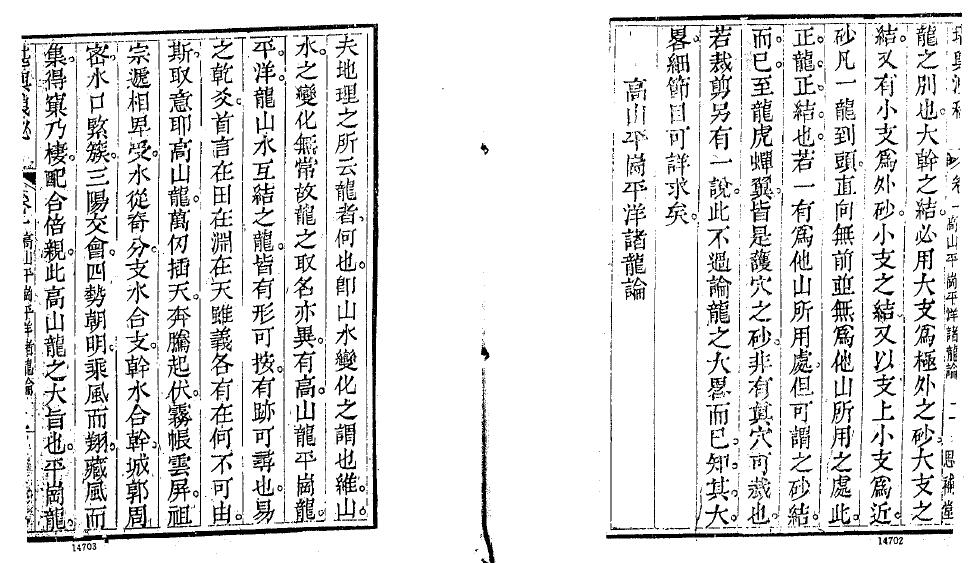 龍之別也大幹之結必用大支爲極外之砂大支之
結又有小支爲外砂小支之結又以支上小支爲近
砂凡一龍到頭直向無前並無爲他山所用之處此
正龍正結也若一有爲他山所用處但可謂之砂結
而已至龍虎蟬翼皆是護穴之砂非有真穴可裁也
若裁剪另有一說此不過論龍之大畧而已知其大
畧細節目可詳求矣
高山平崗平洋諸龍論
14702
夫地理之所云龍者何也卽山水變化之謂也維山
水之變化無常故龍之取名亦異有高山龍平崗龍
平洋龍山水互結之龍皆有形可按有跡可尋也易
之乾爻首言在田在淵在天雖義各有在何不可由
斯取意耶高山龍萬仞插天奔騰起伏霧帳雲屏祖
宗遞相卑受水從奇分支水合支幹水合幹城郭周
密水口緊簇三陽交會四勢朝明乘風而翔藏風而
集得窠乃棲配合倍親此高山龍之大旨也平崗龍
高山平崗平洋諸龍論
14703